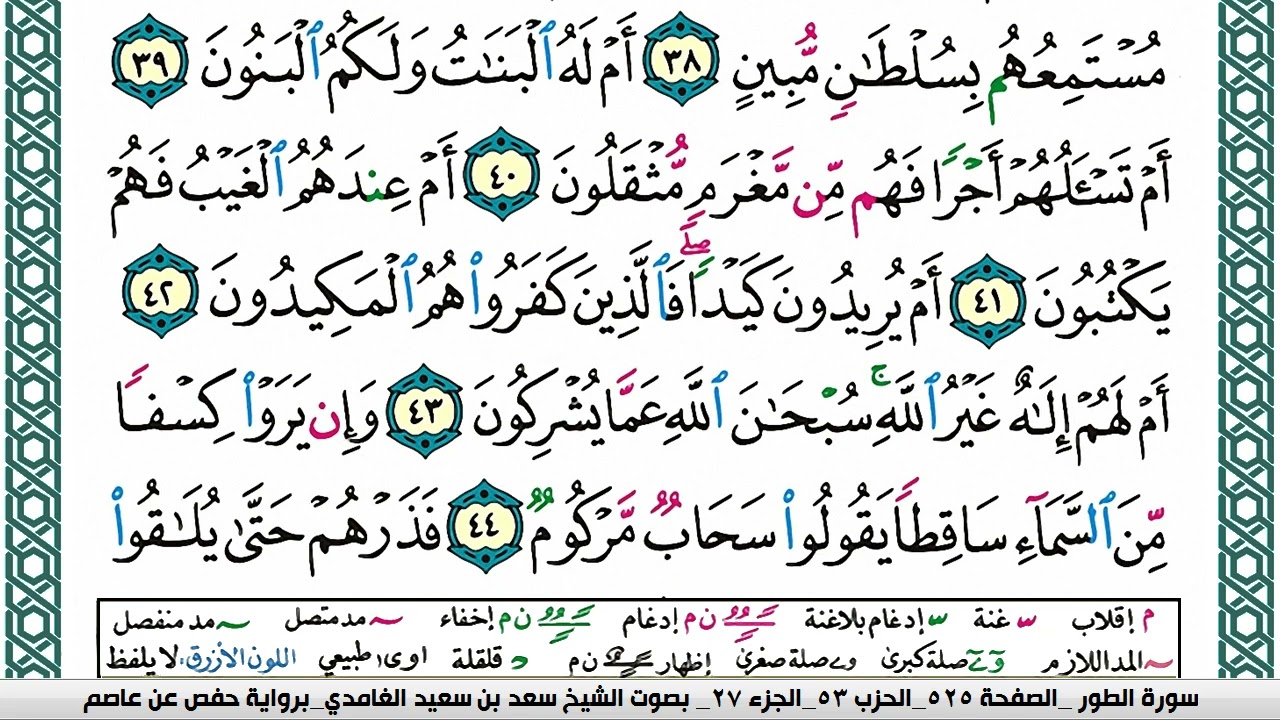 مُسْتَمِعُهُم بِسُلْطَـٰنٍ مُّبِينٍ ٣٨ أَمْ لَهُ ٱلْبَنَـٰتُ وَلَكُمُ ٱلْبَنُونَ ٣٩
أَمْ تَسْـَٔلُهُمْ أَجْرًا فَهُم مِّن مَّغْرَمٍ مُّثْقَلُونَ ٤٠ أَمْ عِندَهُمُ ٱلْغَيْبُ فَهُمْ
يَكْتُبُونَ ٤١ أَمْ يُرِيدُونَ كَيْدًا ۖ فَٱلَّذِينَ كَفَرُوا۟ هُمُ ٱلْمَكِيدُونَ ٤٢
أَمْ لَهُمْ إِلَـٰهٌ غَيْرُ ٱللَّهِ ۚ سُبْحَـٰنَ ٱللَّهِ عَمَّا يُشْرِكُونَ ٤٣ وَإِن يَرَوْا۟ كِسْفًا
مِّنَ ٱلسَّمَآءِ سَاقِطًا يَقُولُوا۟ سَحَابٌ مَّرْكُومٌ ٤٤ فَذَرْهُمْ حَتَّىٰ يُلَـٰقُوا۟
م إقلاب غنة إدغام بلاغنة ن م إدغام ن م إخفاء مد متصل مد منفصل
المد اللازم صلة كبرى صلة صغرى إظهار ن م قلقلة اوى طبيعي اللون الأزرق: لا يلفظ
سورة الطور _الصفحة ٥٢٥_الحزب ٥٣_الجزء ٢٧_ بصوت الشيخ سعد بن سعيد الغامدي_برواية حفص عن عاصم